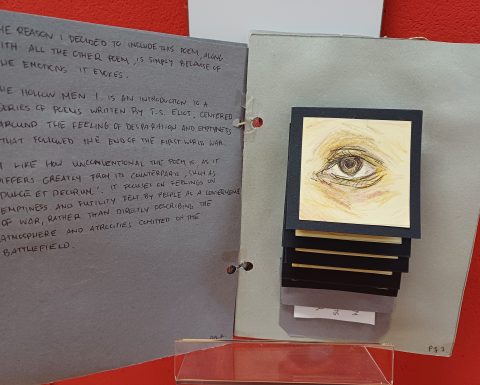 HE REASON I DECIDED TO INCLUDE THIS POEM, ALONG
WITH ALL THE OTHER POEM, IS SIMPLY BECAUSE OF
HE EMOTIONS IT EVOKES.
HE HOLLOW MEN I, IS AN INTRODUCTION TO A
SERIES OF POEMS WRITTEN BY T.S. ELIOT, CENTERED
AROUND THE FEELING OF DESPARATION AND EMPTYNESS
THAT FOLLOWED THE END OF THE FIRST WORLD WAR.
I LIKE HOW UNCONVENTIONAL THE POEM IS, AS IT
DIFFERS GREATLY FROM ITS COUNTERPARTS, SUCH AS
'DULCE ET DECORUM'. IT FOCUSES ON FEELINGS OF
EMPTINESS AND FUTILITY FELT BY PEOPLE AS A CONSEQUENCE
OF WAR, RATHER THAN DIRECTLY DESCRIBING THE
ATMOSPHERE AND ATROCITIES COMMITED ON THE
BATTLEFIELD.